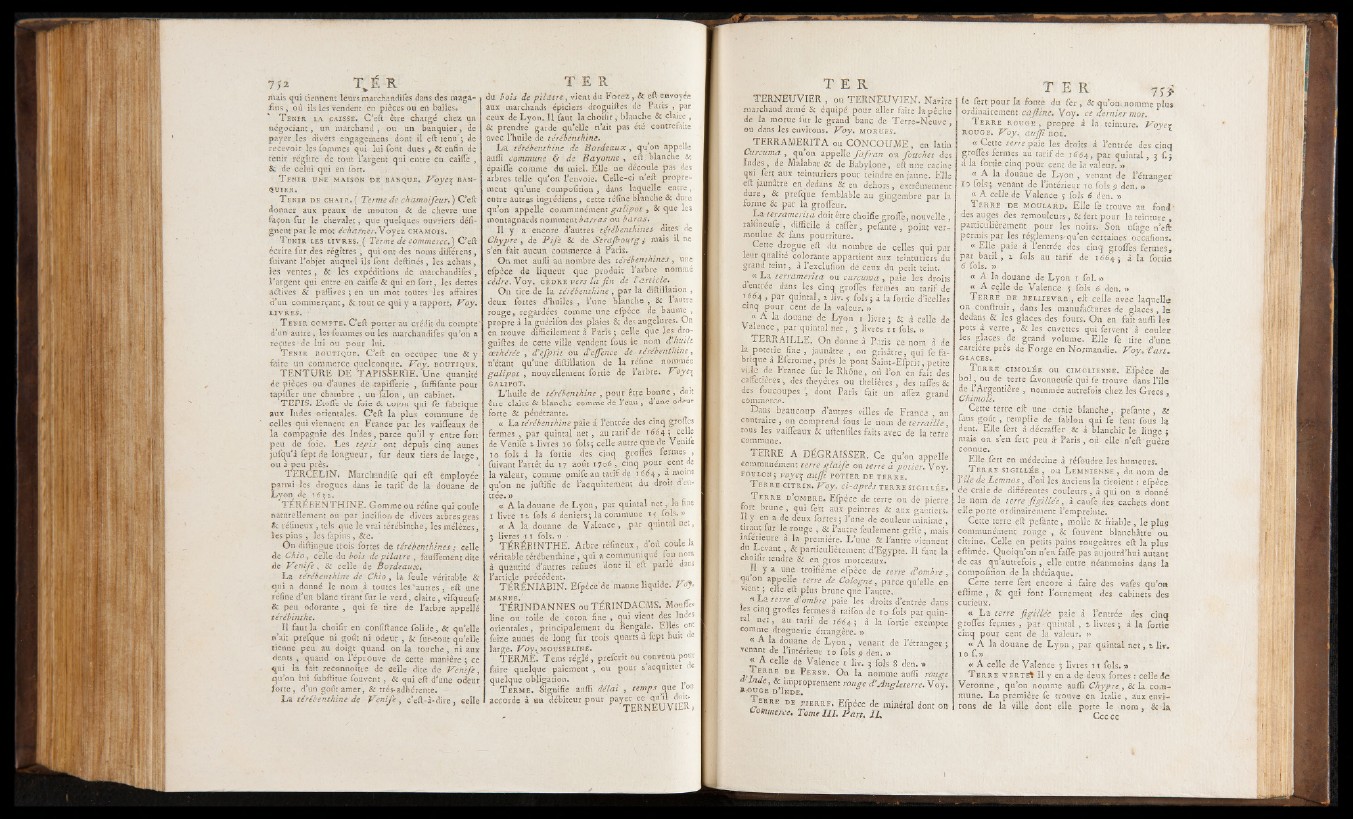 752 TÉR
mais qui tiennent leurs marchandises dans des maga-
sins, où ils les vendent en pièces ou en balles.
TENIR LA CAISSE. C'est être chargé chez un
négociant, un marchand, ou un banquier, de
payer les divers engagemens dont il est tenu ; de
recevoir les sommes qui lui sont dues, & enfin de
tenir régître de tout l'argent qui entre en caisse,
& de celui qui en sort.
TENIR UNE MAISON DE BANQUE. Voyez BAN-
QUIER.
TENIR DE CHAIR. ( Terme de chamoiseur. ) C'est
donner aux peaux de mouton & de chevre une
façon sur le chevalet, que quelques ouvriers dési-
gnent par le mot écharner. Voyez CHAMOIS.
TENIR LES LIVRES. ( Terme de commerce. ) C'est
écrire sur des régîtres, qui ont des noms différens,
suivant l'objet auquel ils sont destinés, les achats,
les ventes, & les expéditions de marchandises,
l'argent qui entre en caisse & qui en sort, les dettes
actives & passives ; en un mot toutes les affaires
d'un commerçant, & tout ce qui y a rapport. Voy.
LIVRES.
TENIR COMPTE. C'est porter au crédit du compte
d'un autre, les sommes ou les marchandises qu'on a
reçues de lui ou pour lui.
TENIR BOUTIQUE. C'est en occuper une & y
faire un commerce quelconque. Voy. BOUTIQUE.
TENTURE DE TAPISSERIE. Une quantité
de pièces ou d'aunes de tapisserie, suffisante pour
tapisser une chambre, un salon, un cabinet.
TEPIS. Etoffe de soie & coton qui se fabrique
aux Indes orientales. C'est la plus commune de
celles qui viennent en France par les vaisseaux de
la compagnie des Indes, parce qu'il y entre fort
peu de soie. Les tepis ont depuis cinq aunes
jusqu'à sept de longueur, sur deux tiers de large,
ou à peu près.
TERCELIN. Marchandise qui est employée
parmi les drogues dans le tarif de la douane de
Lyon de 1632.
TÉRÉBENTHINE. Gomme ou résine qui coule
naturellement ou par incision de divers arbres gras
& résineux, tels que le vrai térébinthe, les mélèzes,
les pins, les sapins, &c.
On distingue trois sortes de térébenthines ; celle
de Chio, celle du bois de pilatre, faussement dite
de Venise, & celle de Bordeaux.
La térébenthine de Chio, la seule véritable &
qui a donné le nom à toutes les autres, est une
résine d'un blanc tirant sur le verd, claire, visqueuse
& peu odorante, qui se tire de l'arbre appellé
térébinthe.
Il faut la choisir en consistance solide, & qu'elle
n'ait presque ni goût ni odeur, & sur-tout qu'elle
tienne peu au doigt quand on la touche, ni aux
dents, quand on l'éprouve de cette manière ; ce
qui la fait reconnoître de celle dite de Venise,
qu'on lui substitue souvent, & qui est d'une odeur
forte, d'un goût amer, & très-adhérente.
La térébenthine de Venise, c'est-à-dire, celle
TER
du bois de pilatre, vient du Forez, & est envoyée
aux marchands épiciers droguistes de Paris, par
ceux de Lyon. Il faut la choisir, blanche & claire,
& prendre garde qu'elle n'ait pas été contrefaite
avec l'huile de térébenthine.
La térébenthine de Bordeaux, qu'on appelle
aussi commune & de Bayonne, est blanche &
épaisse comme du miel. Elle ne découle pas des
arbres telle qu'on l'envoie. Celle-ci n'est propre-
ment qu'une composition, dans laquelle entre,
entre autres ingrédiens, cette résine blanche & dure
qu'on appelle communément galipot, & que les
montagnards nomment barras ou baras.
Il y a encore d'autres térébenthines dites de
Chypre, de Pise & de Strasbourg ; mais il ne
s'en fait aucun commerce à Paris.
On met aussi au nombre des térébenthines, une
espèce de liqueur que produit l'arbre nommé
cèdre. Voy. CÈDRE vers la fin de l'article.
On tire de la térébenthine, par la distillation,
deux sortes d'huiles, l'une blanche, & l'autre
rouge, regardées comme une espèce de baume,
propre à la guérison des plaies & des angelures. On
en trouve difficilement à Paris ; celle que les dro-
guistes de cette ville vendent sous le nom d'huile
æthérée, d'esprit ou d'essence de térébenthine,
n'étant qu'une distillation de la résine nommée
galipot, nouvellement sortie de l'arbre. Voyez
GALIPOT.
L'huile de térébenthine, pour être bonne, doit
être claire & blanche comme de l'eau, d'une odeur
forte & pénétrante.
« La térébenthine paie à l'entrée des cinq grosses
fermes, par quintal net, au tarif de 1664 ; celle
de Venise 2 livres 10 sols ; celle autre que de Venise
10 sols à la sortie des cinq grosses fermes,
suivant l'arrêt du 17 août 1706, cinq pour cent de
la valeur, comme omise au tarif de 1664, à moins
qu'on ne justifie de l'acquittement du droit d'en-
trée. »
« A la douane de Lyon, par quintal net, la fine
1 livre 12 sols 6 deniers ; la commune 15 sols. »
« A la douane de Valence, par quintal net,
3 livres 11 sols. »
TÉRÉBINTHE. Arbre résineux, d'où coule la
véritable térébenthine, qui a communiqué son nom
à quantité d'autres résines dont il est parlé dans
l'article précédent.
TÉRÉNIABIN. Espèce de manne liquide. Voy.
MANNE.
TÉRINDANNES ou TÉRINDACMS. Mousse-
line ou toile de coton fine, qui vient des Indes
orientales, principalement du Bengale. Elles ont
seize aunes de long sur trois quarts à sept huit de
large. Voy. MOUSSELINE.
TERME. Tems réglé, prescrit ou convenu pour
faire quelque paiement, ou pour s'acquitter de
quelque obligation.
TERME. Signifie aussi délai, temps que l'on
accorde à un débiteur pour payer ce qu'il doit.
TERNEUVIER,
TER
TERNEUVIER, ou TERNEUVIEN. Navire
marchand armé & équipé pour aller faire la pêche
de la morue sur le grand banc de Terre-Neuve,
ou dans les environs. Voy. MORUES.
TERRAMERITA ou CONCOUME, en latin
Curcuma, qu'on appelle safran ou souchet des
Indes, de Malabar & de Babylone, est une racine
qui sert aux teinturiers pour teindre en jaune. Elle
est jaunâtre en dedans & en dehors, extrêmement
dure, & presque semblable au gingembre par la
forme & par la grosseur.
La terramerita doit être choisie grosse, nouvelle,
raisineuse, difficile à casser, pesante, point ver-
moulue & sans pourriture.
Cette drogue est du nombre de celles qui par
leur qualité colorante appartient aux teinturiers du
grand teint, à l'exclusion de ceux du petit teint.
« La terramerita ou curcuma, paie les droits
d'entrée dans les cinq grosses fermes au tarif de
1664, par quintal, 2 liv. 5 sols ; à la sortie d'icelles
cinq pour cent de la valeur. »
« A la douane de Lyon 1 livre ; & à celle de
Valence, par quintal net, 3 livres 11 sols. »
TERRAILLE. On donne à Paris ce nom à de
la poterie fine, jaunâtre, ou grisâtre, qui se fa-
brique à Escrome, près le pont Saint-Esprit, petite
ville de France sur le Rhône, où l'on en fait des
caffetières, des theyères ou theïières, des tasses &
des soucoupes, dont Paris fait un assez grand
commerce.
Dans beaucoup d'autres villes de France, au
contraire, on comprend sous le nom de terraille,
tous les vaisseaux & ustensiles faits avec de la terre
commune.
TERRE A DÉGRAISSER. Ce qu'on appelle
communément terre glaise ou terre à potier. Voy.
FOULON ; voyez aussi POTIER DE TERRE.
TERRE CITRIN. Voy. ci-après TERRE SIGILLÉE.
TERRE D'OMBRE. Espèce de terre ou de pierre
fort brune, qui sert aux peintres & aux gantiers.
Il y en a de deux sortes ; l'une de couleur minime,
tirant sur le rouge, & l'autre seulement grise, mais
inférieure à la première. L'une & l'autre viennent
du Levant, & particulièrement d'Egypte. Il faut la
choisir tendre & en gros morceaux.
Il y a une troisième espèce de terre d'ombre,
qu'on appelle terre de Cologne, parce qu'elle en
vient ; elle est plus brune que l'autre.
« La terre d'ombre paie les droits d'entrée dans
les cinq grosses fermes à raison de 10 sols par quin-
tal net, au tarif de 1664 ; à la sortie exempte
comme droguerie étrangère. »
« A la douane de Lyon, venant de l'étranger ;
venant de l'intérieur 10 sols 9 den. »
« A celle de Valence 1 liv. 3 sols 8 den. »
TERRE DE PERSE. On la nomme aussi rouge
d'Inde, & improprement rouge d'Angleterre. Voy.
ROUGE D'INDE.
TERRE DE PIERRE. Espèce de minéral dont on
Commerce. Tome III. Part. II.
TER 753
se sert pour la fonte du fer, & qu'on nomme plus
ordinairement castine. Voy. ce dernier mot.
TERRE ROUGE, propre à la teinture. Voyez
ROUGE. Voy. aussi BOL.
« Cette terre paie les droits à l'entrée des cinq
grosses fermes au tarif de 1664, par quintal, 3 s. ;
à la sortie cinq pour cent de la valeur. »
« A la douane de Lyon, venant de l'étranger
10 sols ; venant de l'intérieur 10 sols 9 den. »
« A celle de Valence 3 sols 6 den. »
TERRE DE MOULARD. Elle se trouve au fond
des auges des remouleurs, & sert pour la teinture,
particulièrement pour les noirs. Son usage n'est
permis par les réglemens qu'en certaines occasions.
« Elle paie à l'entrée des cinq grosses fermes,
par baril, 2 sols au tarif de 1664 ; à la sortie
6 sols. »
« A la douane de Lyon 1 sol. »
« A celle de Valence 3 sols 6 den. »
TERRE DE BELLIEVRE, est celle avec laquelle
on construit, dans les manufactures de glaces, le
dedans & les glaces des fours. On en fait aussi les
pots à verre, & les cuvettes qui servent à couler
les glaces de grand volume. Elle se tire d'une
carrière près de Forge en Normandie. Voy. l'art.
GLACES.
TERRE CIMOLÉE ou CIMOLIENNE. Espèce de
bol, ou de terre savonneuse qui se trouve dans l'île
de l'Argentière, nommée autrefois chez les Grecs,
Chimole.
Cette terre est une craie blanche, pesante, &
sans goût, remplie de sablon qui se sent sous la
dent. Elle sert à décrasser & à blanchir le linge ;
mais on s'en sert peu à Paris, où elle n'est guère
connue.
Elle sert en médecine à résoudre les humeurs.
TERRE SIGILLÉE, ou LEMNIENNE, du nom de
l'île de Lemnos, d'où les anciens la tiroient : espèce
de craie de différentes couleurs, à qui on a donné
le nom de terre sigillée, à cause des cachets dont
elle porte ordinairement l'empreinte.
Cette terre est pesante, molle & friable, le plus
communément rouge, & souvent blanchâtre ou
citrine. Celle en petits pains rougeâtres est la plus
estimée. Quoiqu'on n'en fasse pas aujourd'hui autant
de cas qu'autrefois, elle entre néanmoins dans la
composition de la thériaque.
Cette terre sert encore à faire des vases qu'on
estime, & qui font l'ornement des cabinets des
curieux.
« La terre sigillée paie à l'entrée des cinq
grosses fermes, par quintal, 2 livres ; à la sortie
cinq pour cent de la valeur. »
« A la douane de Lyon, par quintal net, 2 liv.
10 s. »
« A celle de Valence 3 livres 11 sols. »
TERRE VERTE. Il y en a de deux sortes : celle de
Veronne, qu'on nomme aussi Chypre, & la com-
mune. La première se trouve en Italie, aux envi-
rons de la ville dont elle porte le nom, & la
Ccc cc